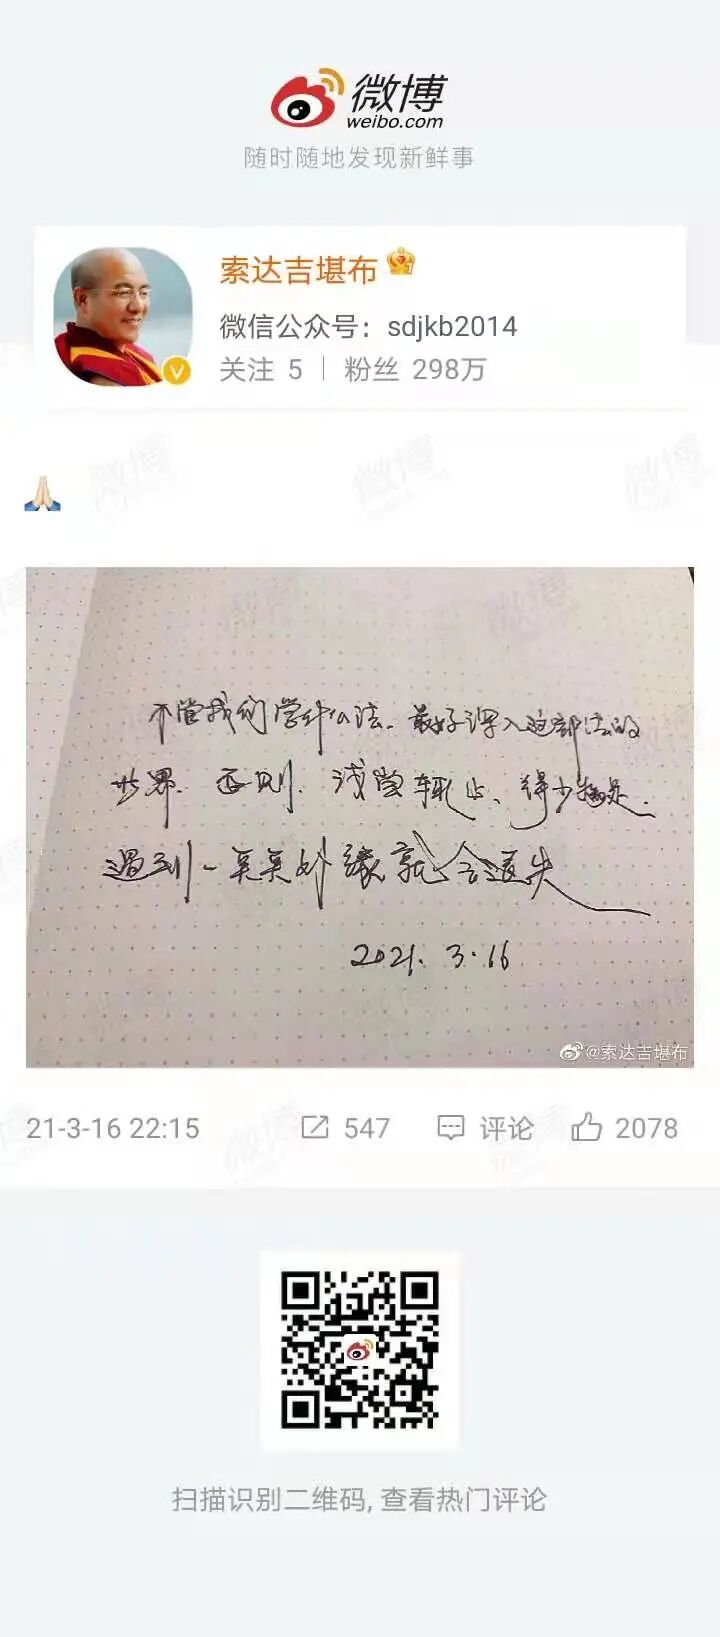 微博
weibo.com
随时随地发现新鲜事
索达吉堪布
微信公众号：sdjkb2014
关注 5 | 粉丝 298万
不管我们学什么法、最好深入这部法的
世界. 否则. 浅尝辄止、得少为足.
遇到一点点外缘就会退失
2021. 3. 16
@索达吉堪布
21-3-16 22:15 547 评论 2078
扫描识别二维码, 查看热门评论